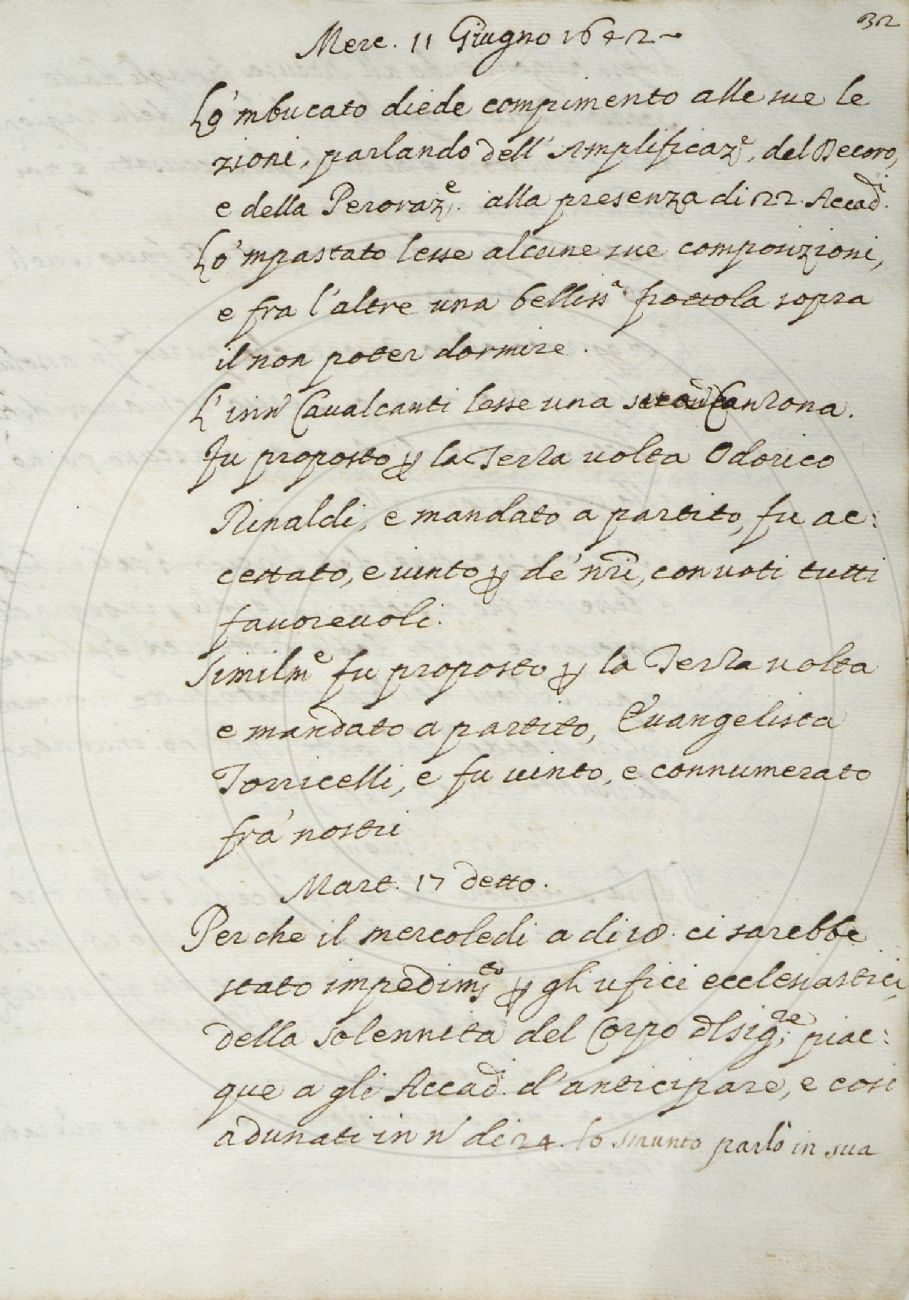 32
Merc. 11 Giugno 1642
Lo 'mbucato diede compimento alle sue le
zioni, parlando dell' Amplificaz.e, del Decoro,
e della Peroraz.e alla presenza di 22. Accad.
Lo 'mpastato lesse alcune sue composizioni,
e fra l'altre una belliss.a frottola sopra
il non poter dormire.
L' inn.o Cavalcanti lesse una Canzona.
Fu proposto p la Terza volta Odorico
Rinaldi, e mandato a partito, fu ac:
cettato, e vinto p de' nri, con voti tutti
favorevoli.
Similm.e fu proposto p la Terza volta
e mandato a partito, Evangelista
Torricelli, e fu vinto, e connumerato
fra' nostri
Mart. 17 detto.
Perche il mercoledi a di 18. ci sarebbe
stato impedim.to p gli ufici ecclesiastici,
della solennita del Corpo dl Sig.re, piac:
que a gli Accad. d'anticipare, e cosi
adunati in n.o di 24. lo smunto parlò in sua